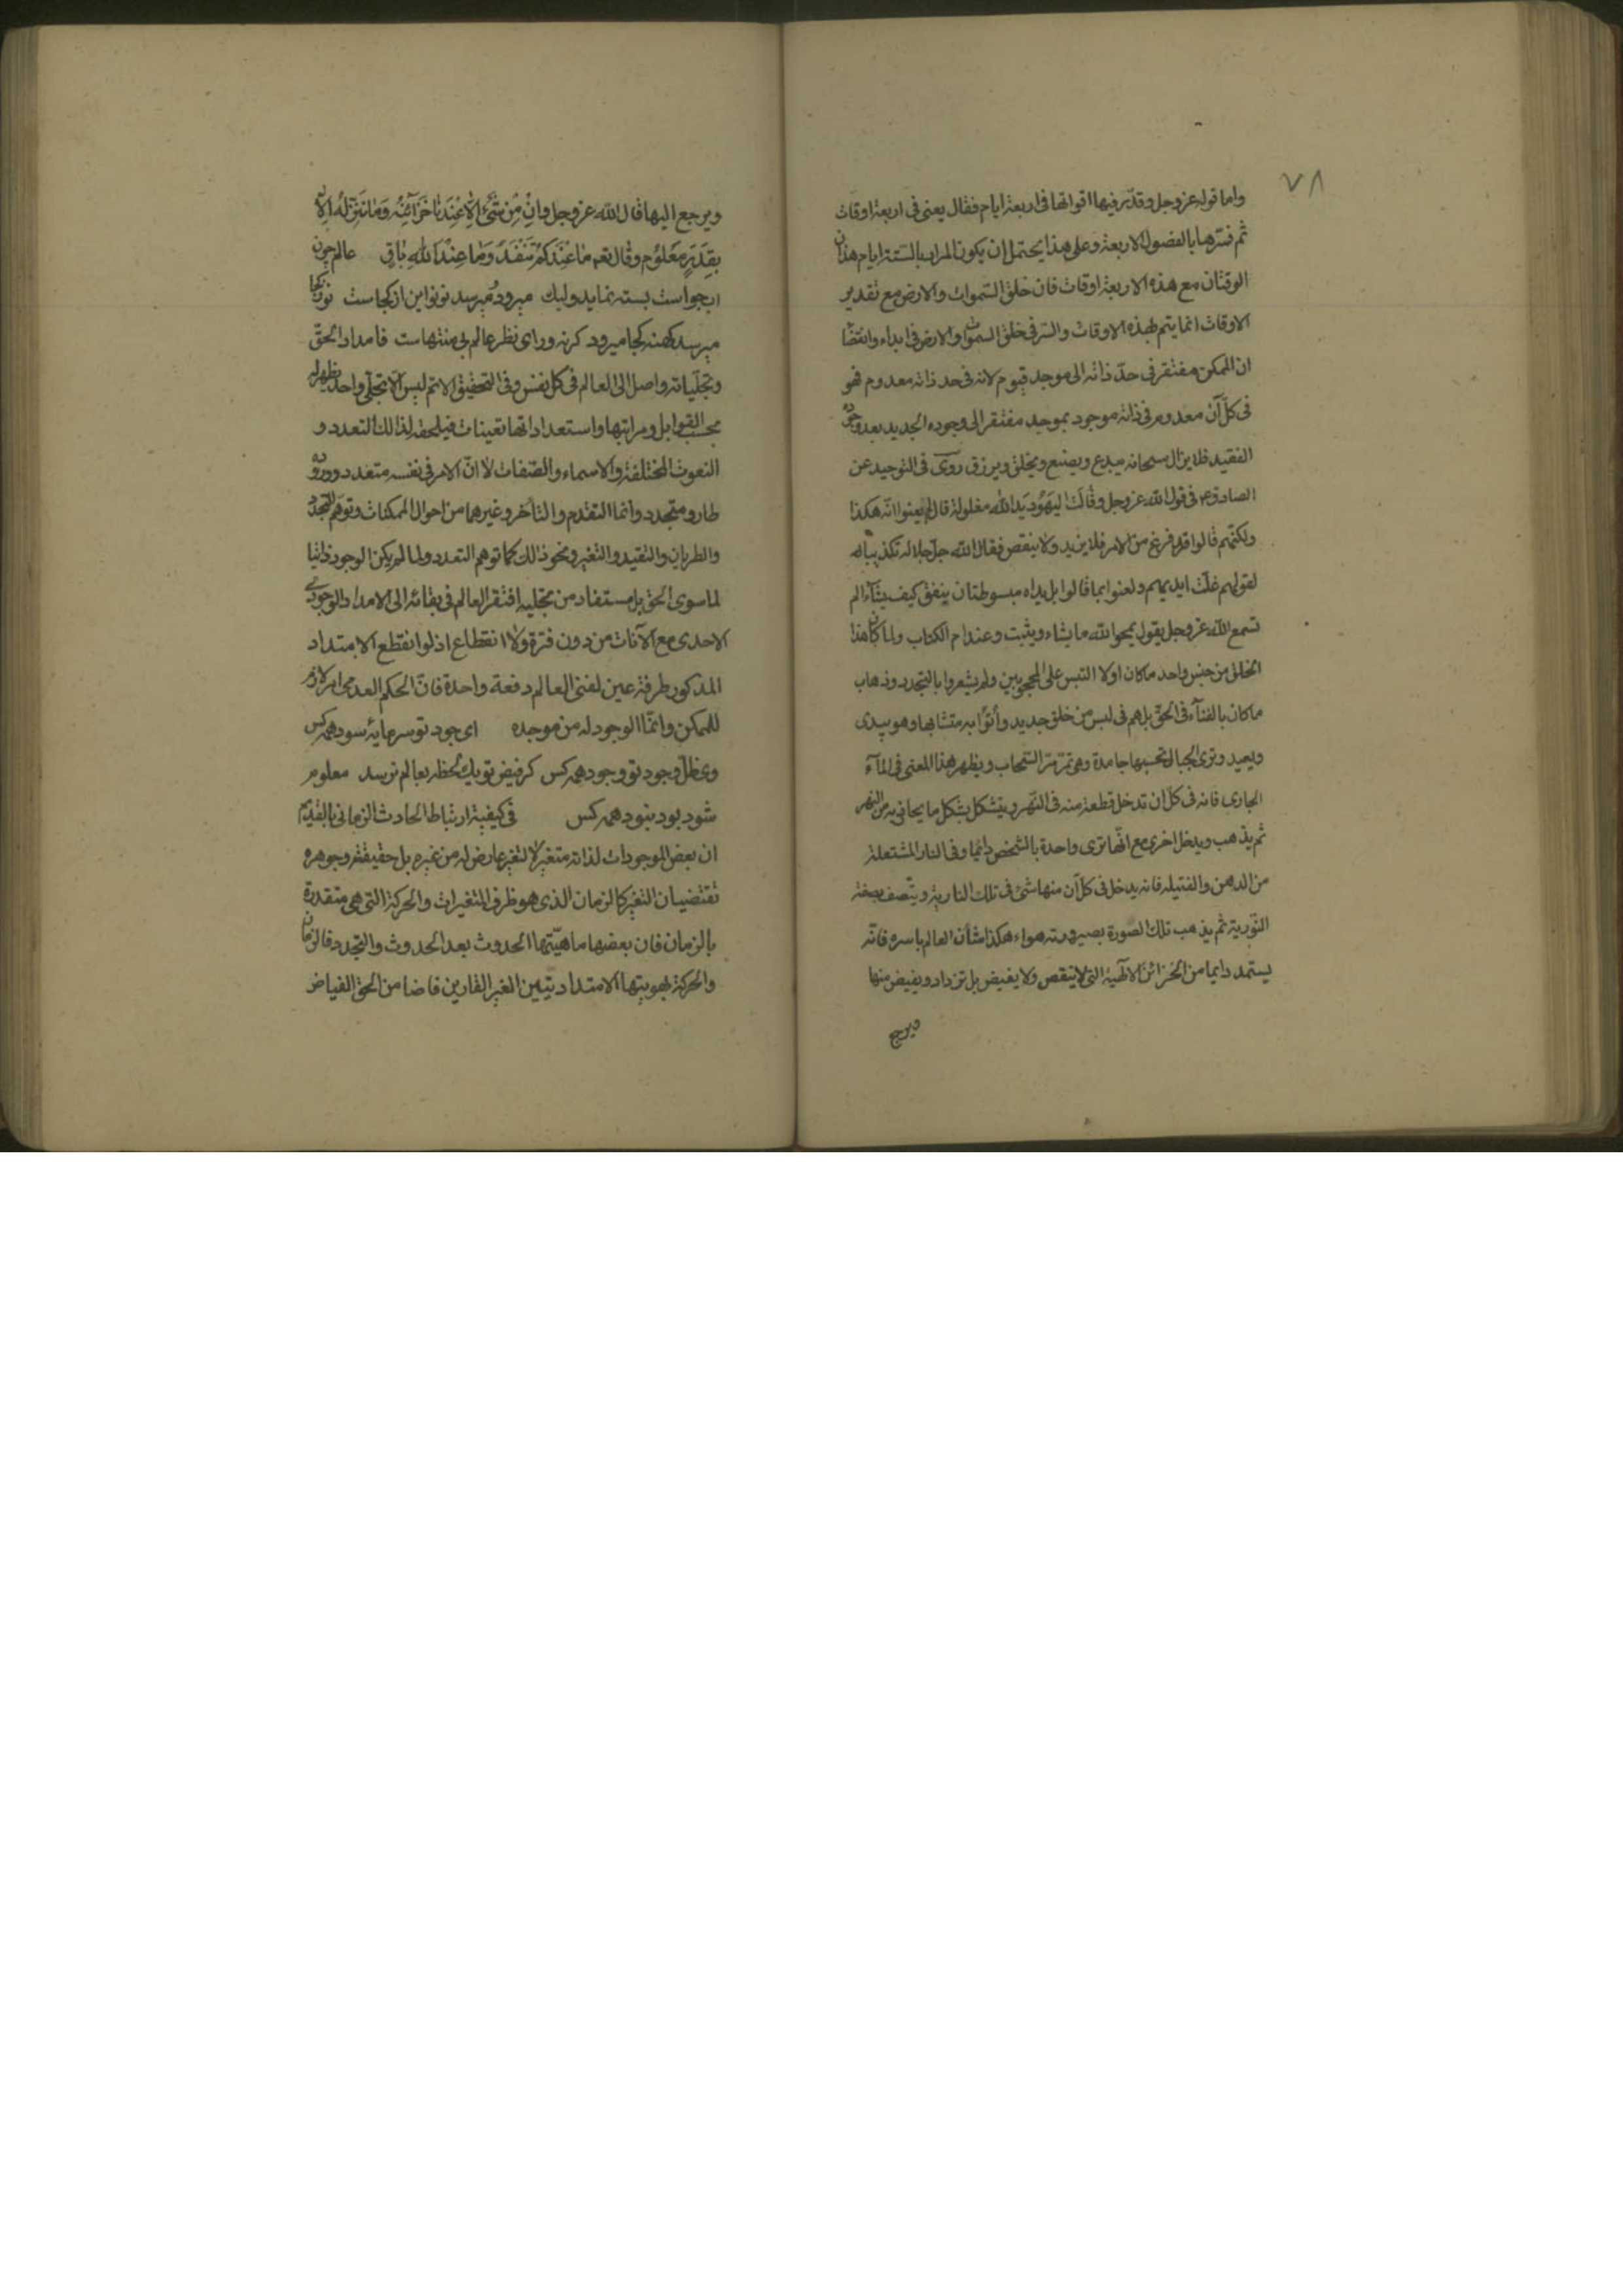 ٧٨
واما قوله عز وجل وقدّر فيها اقواتها فى اربعة ايام فقال يعنى فى اربعة اوقات
ثم فسّرها بالفصول الاربعة وعلى هذا يحتمل ان يكون المراد بالستة ايام هذان
الوقتان مع هذه الاربعة اوقات فان خلق السموات والارض مع تقدير
الاوقات انما يتم بهذه الاوقات والسر فى خلق السموات والارض فى ابداء وانقضا
ان الممكن مفتقر فى حدّ ذاته الى موجد قيوم لانه فى حد ذاته معدوم فهو
فى كلّ آن معدوم فى ذاته موجود بموجد مفتقر الى وجوده الجديد بعد وجوده
الفقيد فلا يزال سبحانه يبدع ويصنع ويخلق ويرزق روى فى التوحيد عن
الصادق ع فى قول الله عز وجل وقالت اليهود يد الله مغلولة قال لم يعنوا انه هكذا
ولكنهم قالوا قد فرغ من الامر فلا يزيد ولا ينقص فقال الله جل جلاله تكذيبا
لقولهم غلّت ايديهم ولعنوا بما قالوا بل يداه مبسوطتان ينفق كيف يشآء الم
تسمع الله عز وجل يقول يمحوا الله ما يشاء ويثبت وعنده ام الكتاب ولما كان هذا
الخلق من جنس واحد ما كان اولا التبس على المحجوبين ولم يشعروا بالتجدد وذهاب
ما كان بالفنآء فى الحقّ بل هم فى لبس من خلق جديد وأتوا به متشابها وهو يبدى
ويعيد وترى الجبال تحسبها جامدة وهى تمرّ مرّ السّحاب ويظهر هذا المعنى فى المآء
الجارى فانه فى كل ان تدخل قطعة منه فى النّهر ويتشكل بشكل ما يحاذيه من النهر
ثم يذهب ويدخل اخرى مع انّها ترى واحدة بالشخص دائما وفى النار المشتعلة
من الدهن والفتيله فانه يدخل فى كل آن منها شئ فى تلك النارية ويتّصف بصفة
النّورية ثم يذهب تلك الصورة بصيرورته هواء هكذا شأن العالم باسره فانّه
يستمد دايما من الخزائن الالٓهية التى لا ينقص ولا يغيض بل تزداد ويفيض منها
ويرجع
ويرجع اليها قال الله عز وجل وان من شئ الا عندنا خزآئنه وما ننزله الا
بقدر معلوم وقال تعه ما عندكم ينفد وما عند الله باق عالم چون
اب جو است بسته نمايد وليك ميرود ميرسد نو نو اين از كجاست نو ز كجا
ميرسد كهنه كجا ميرود كرنه وراى نظر عالم بى منتهاست فامداد الحقّ
وتجلّياته واصل الى العالم فى كل نفس وفى التحقيق الاتم ليس الا تجلّى واحد يظهر له
بحسب القوابل ومراتبها واستعداداتها تعينات فيلحقه لذلك التعدد و
النعوت المختلفة والاسماء والصّفات لا انّ الامر فى نفسه متعدد ووروده
طار ومتجدد وانما التقدم والتأخر وغيرهما من احوال الممكنات وتوهم التجدد
والطريان والتقيد والتغير ونحو ذلك كما توهم التعدد ولما لم يكن الوجود ذاتيا
لما سوى الحق بل مستفاد من تجليه افتقر العالم فى بقائه الى الامداد الوجودى
الاحدى مع الآنات من دون فترة ولا انقطاع اذ لو انقطع الامتداد
المذكور طرفة عين لفنى العالم دفعة واحدة فانّ الحكم العدمى امر لازم
للممكن وانّما الوجود له من موجده اى جود تو سرمايۀ سود همه كس
وى ظلّ وجود تو وجود همه كس كر فيض تو يك لحظه بعالم نرسد معلوم
شود بود نبود همه كس فى كيفية ارتباط الحادث الزمانى بالقديم
ان بعض الموجودات لذاته متغير لا لتغير عارض له من غيره بل حقيقته وجوهره
تقتضيان التغير كالزمان الذى هو ظرف المتغيرات والحركة التى هى متقدرة
بالزمان فان بعضها ماهيّتها الحدوث بعد الحدوث والتجدد فالزمان
والحركة بهويتها الامتداديتين الغير القارين فاضا من الحق الفياض